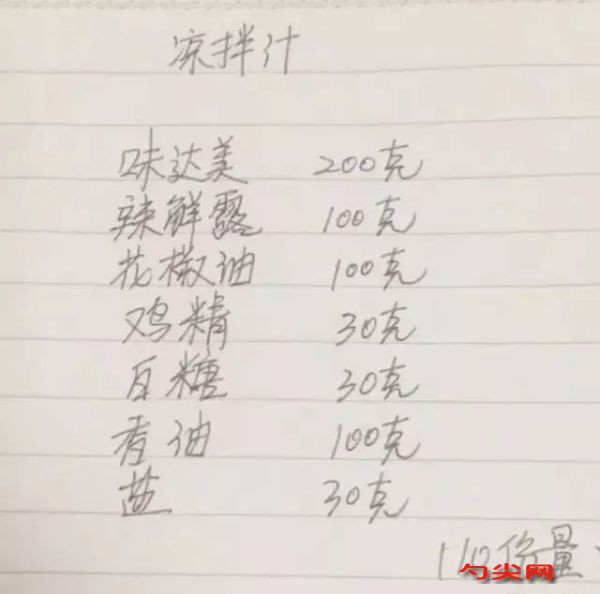 凉拌汁
味达美 200克
辣鲜露 100克
花椒油 100克
鸡精 30克
白糖 30克
香油 100克
盐 30克
110份量
勺尖网